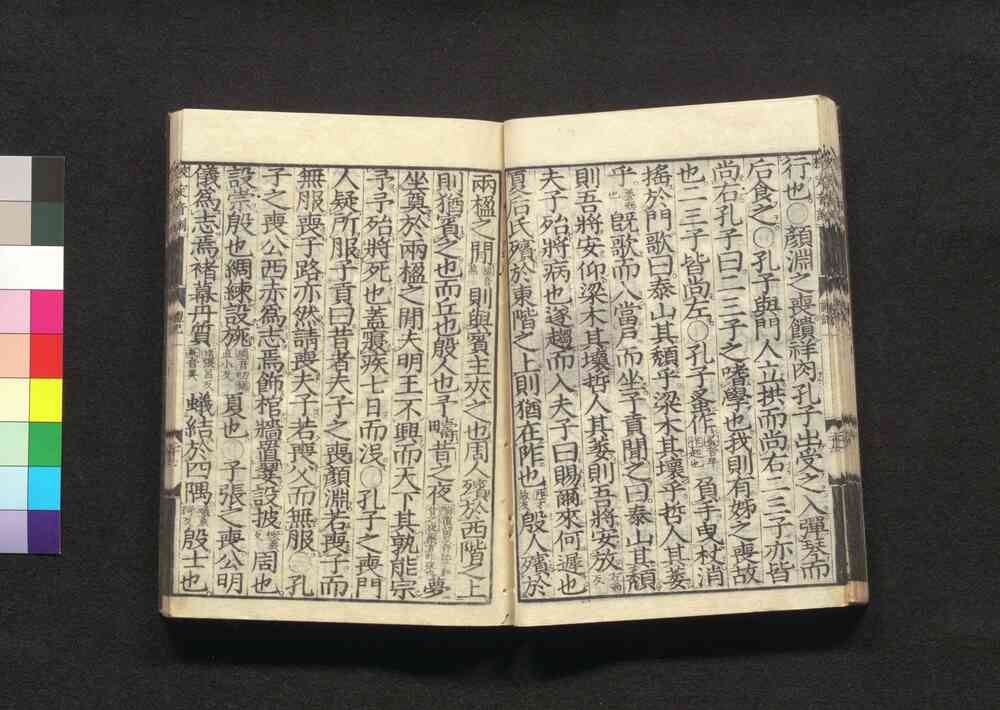 行也○顏淵之喪饋祥肉孔子出受之入彈琴而
后食之○孔子與門人立拱而尚右二三子亦皆
尚右孔子曰二三子之嗜學也我則有姊之喪故
也二三子皆尚左○孔子蚤作負手曳杖消
搖於門歌曰泰山其頹乎梁木其壞乎哲人其萎
乎既歌而入當戶而坐子貢聞之曰泰山其頹
則吾將安仰梁木其壞哲人其萎則吾將安放
夫子殆將病也遂趨而入夫子曰賜爾來何遲也
夏后氏殯於東階之上則猶在阼也殷人殯於
兩楹之閒則與賓主夾之也周人殯於西階之上
則猶賓之也而丘也殷人也予疇昔之夜夢
坐奠於兩楹之閒夫明王不興而天下其孰能宗
予予殆將死也蓋寢疾七日而沒○孔子之喪門
人疑所服子貢曰昔者夫子之喪顏淵若喪子而
無服喪子路亦然請喪夫子若喪父而無服○孔
子之喪公西赤為志焉飾棺牆置翣設披周也
設崇殷也綢練設旐夏也○子張之喪公明
儀為志焉褚幕丹質蟻結於四隅殷士也